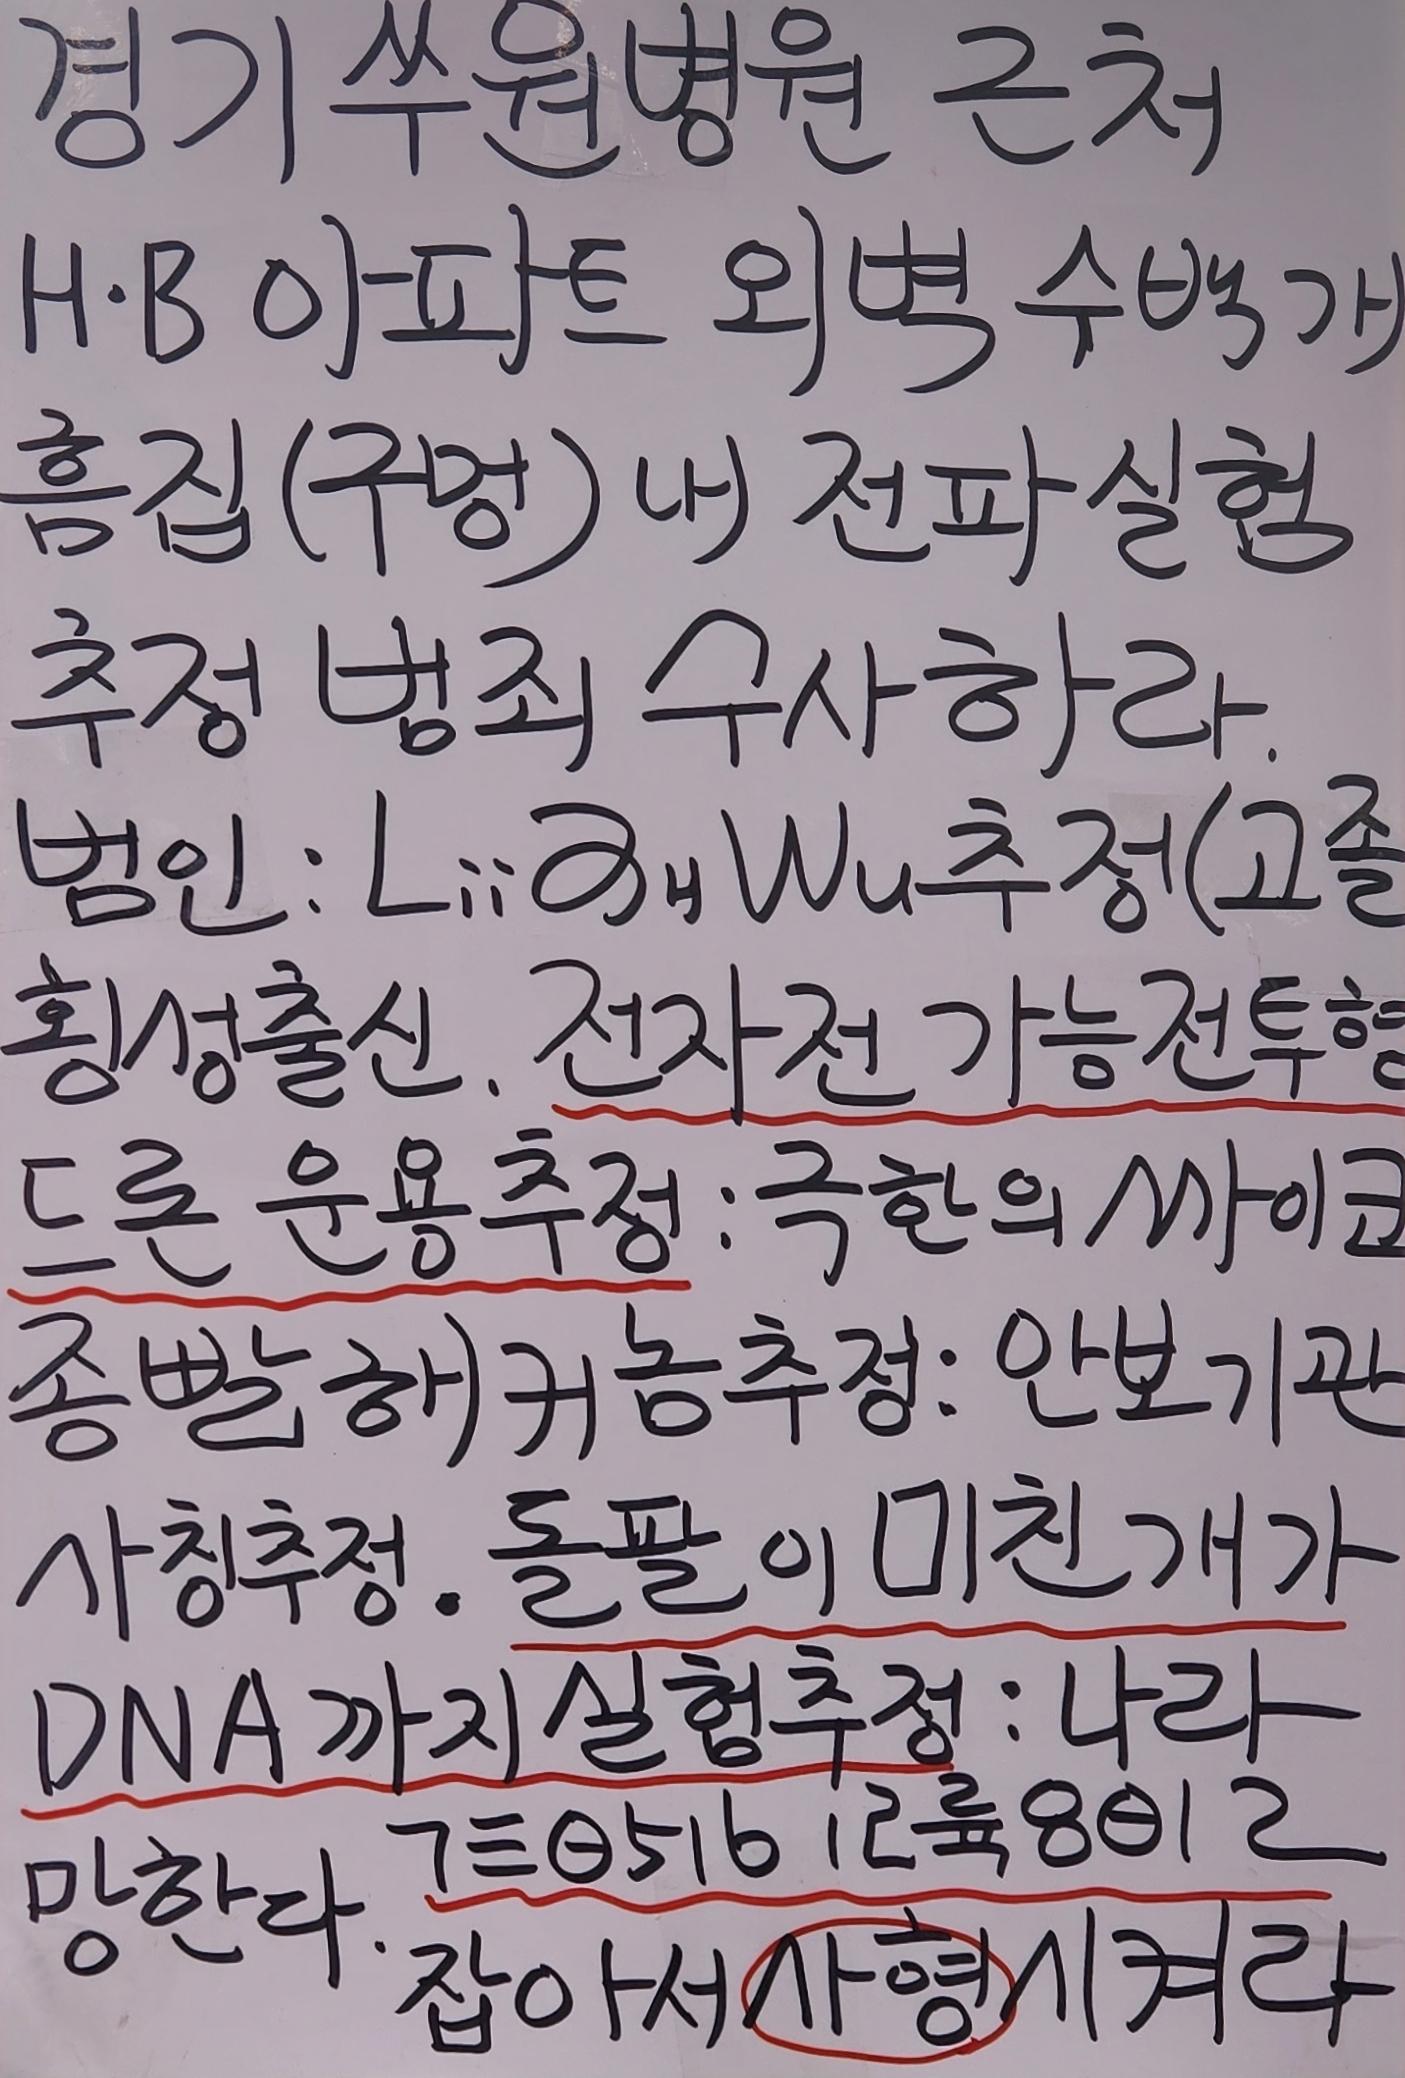 경기 쑤원병원 근처
H·B 아파트 외벽 수백개
흠집(구멍) 내 전파실험
추정 범죄 수사하라.
범인: Lii Wu추정(고졸
횡성출신. 전자전 가능전투형
드론 운용추정: 극한의 싸이코
종빨해) 귀농추정: 안보기관
사칭추정. 돌팔이 미친개가
DNA까지 실험추정: 나라
망한다.
잡아서 사형시켜라